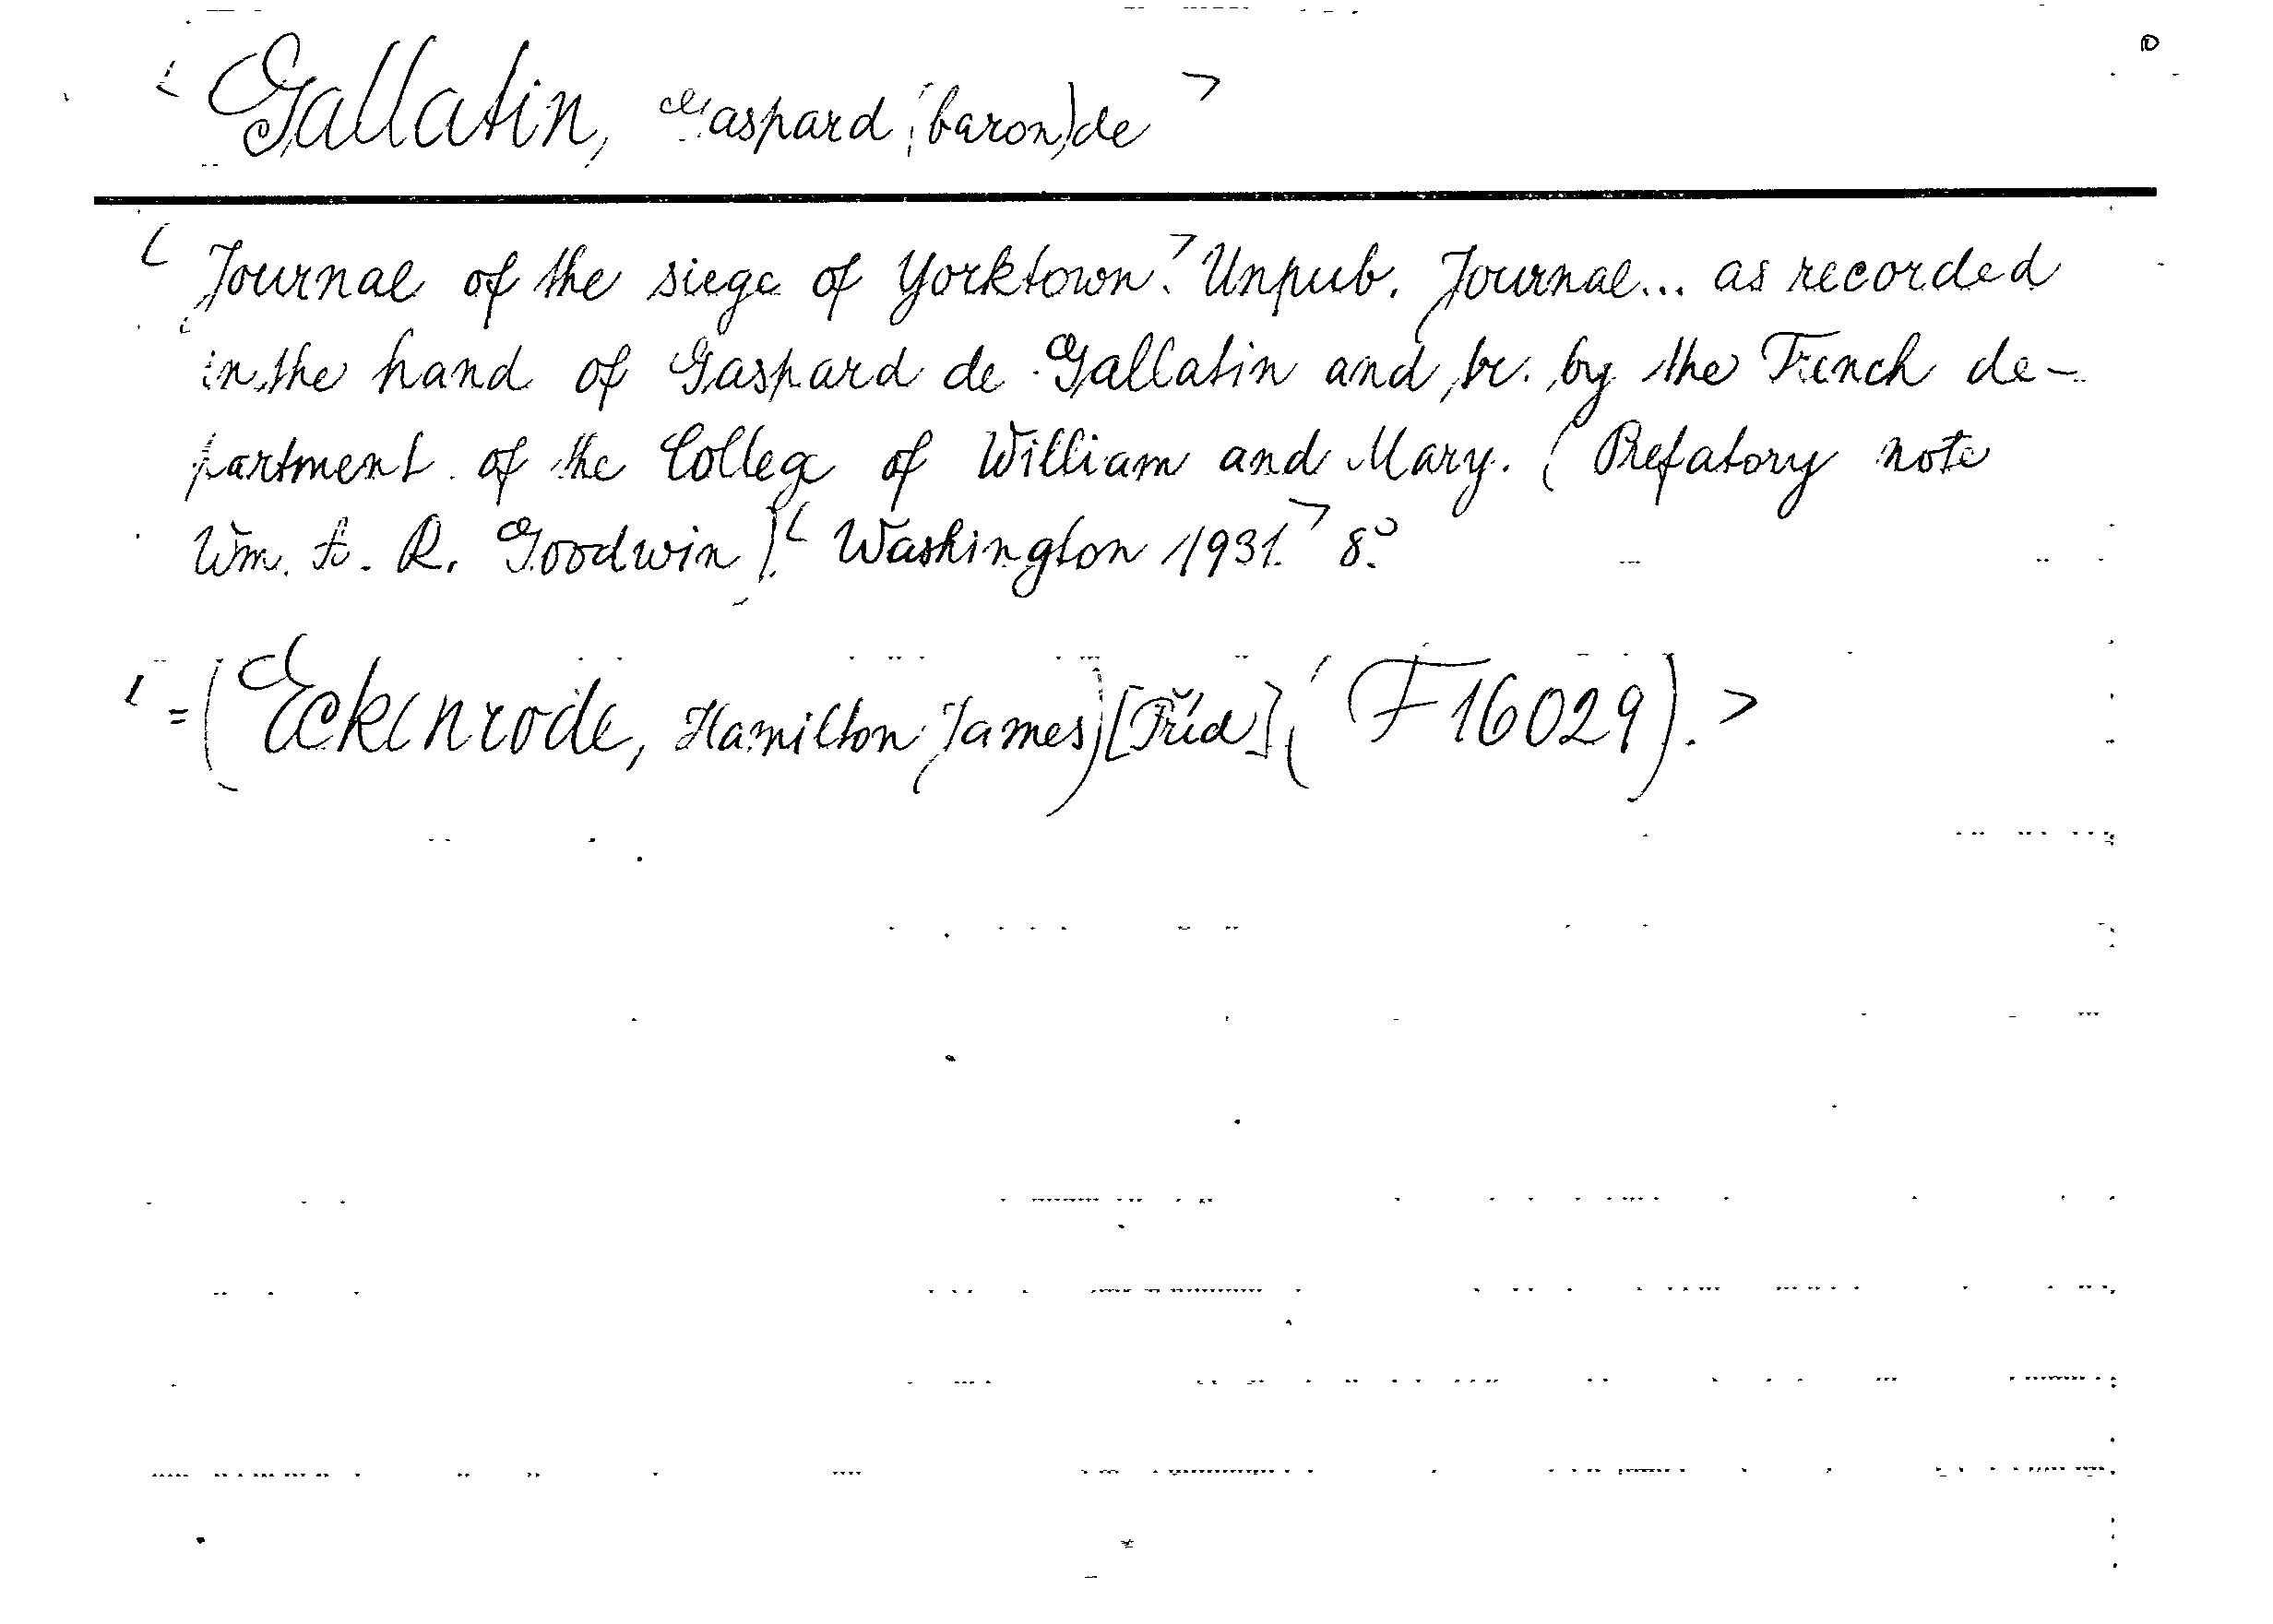 <Gallatin, Gaspard (baron) de>
<Journal of the siege of Yorktown.> Unpub. Journal... as recorded
in the hand of Gaspard de Gallatin and tr. by the French de-
partment of the College of William and Mary. (Prefatory note
Wm. A. R. Goodwin).< Washington 1931.> 8°.
<=(Eckenrode, Hamilton James) [Příd] (F 16029).>